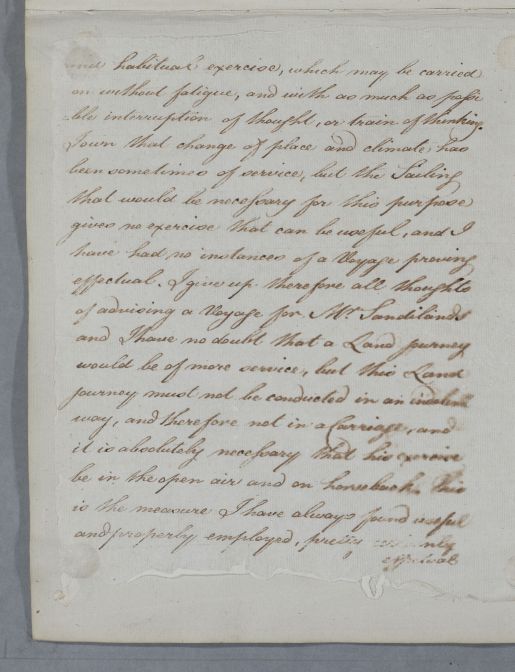 and habitual exercise, which may be carried
on without fatigue, and with as much as possi
-ble interruption of thought, or train of thinking.
I own that change of place and climate has
been sometimes of service, but the Sailing
that would be necessary for this purpose
gives no exercise that can be useful, and I
have had no instances of a Voyage proving
effectual. I give up therefore all thoughts
of advising a Voyage for Mr. Sandilands
and I have no doubt that a Land journey
would be of more service, but this Land
Journey must not be conducted in an indolent
way, and therefore not in a Carriage, and
it is absolutely necessary that his exercise
be in the open air and on horseback. This
is the measure I have always found useful
and properly employed, pretty certainly
effectual